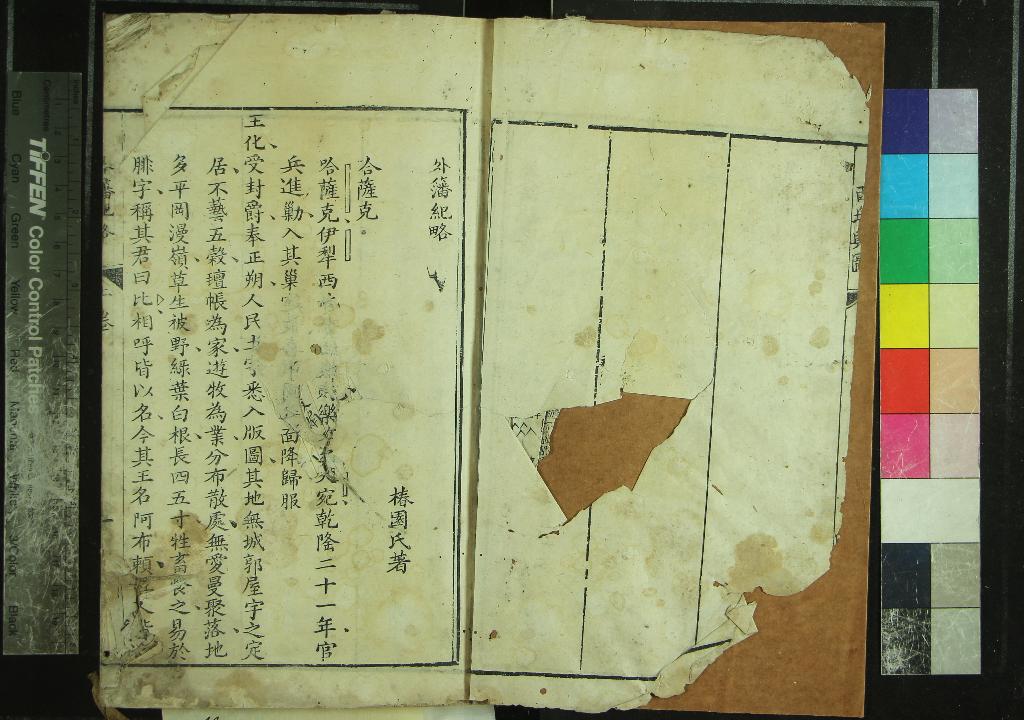 外藩紀略
椿園氏著
哈薩克
哈薩克伊犁西 大宛乾隆二十一年官
兵進勦入其巢 面降歸服
王化受封爵奉正朔人民土宇悉入版圖其地無城郭屋宇之定
居不藝五穀氊帳為家遊牧為業分布散處無愛曼聚落地
多平岡漫嶺草生被野綠葉白根長四五寸牲畜食之易於
腓字稱其君曰比相呼皆以名今其王名阿布賴
TIFFEN Color Control Patches
Blue
Cyan
Green
Yellow
Red
Magenta
White
3/Color
Black